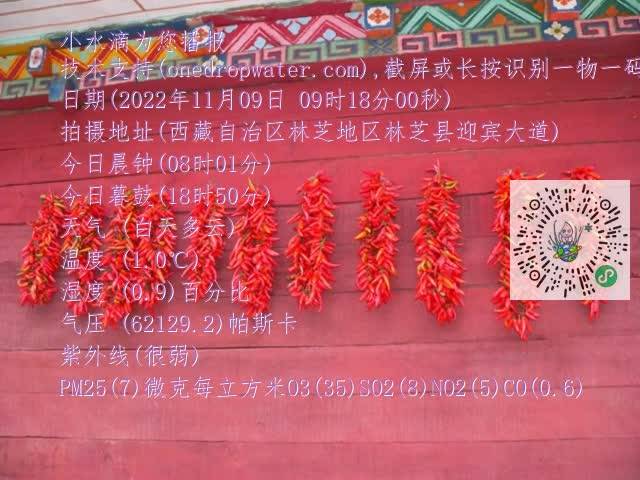 小水滴为您播报
技术支持(onedropwater.com),截屏或长按识别一物一码
日期(2022年11月09日 09时18分00秒)
拍摄地址(西藏自治区林芝地区林芝县迎宾大道)
今日晨钟(08时01分)
今日暮鼓(18时50分)
天气 (白天多云)
温度 (1.0℃)
湿度 (0.9)百分比
气压 (62129.2)帕斯卡
紫外线(很弱)
PM25(7)微克每立方米O3(35)SO2(8)NO2(5)CO(0.6)